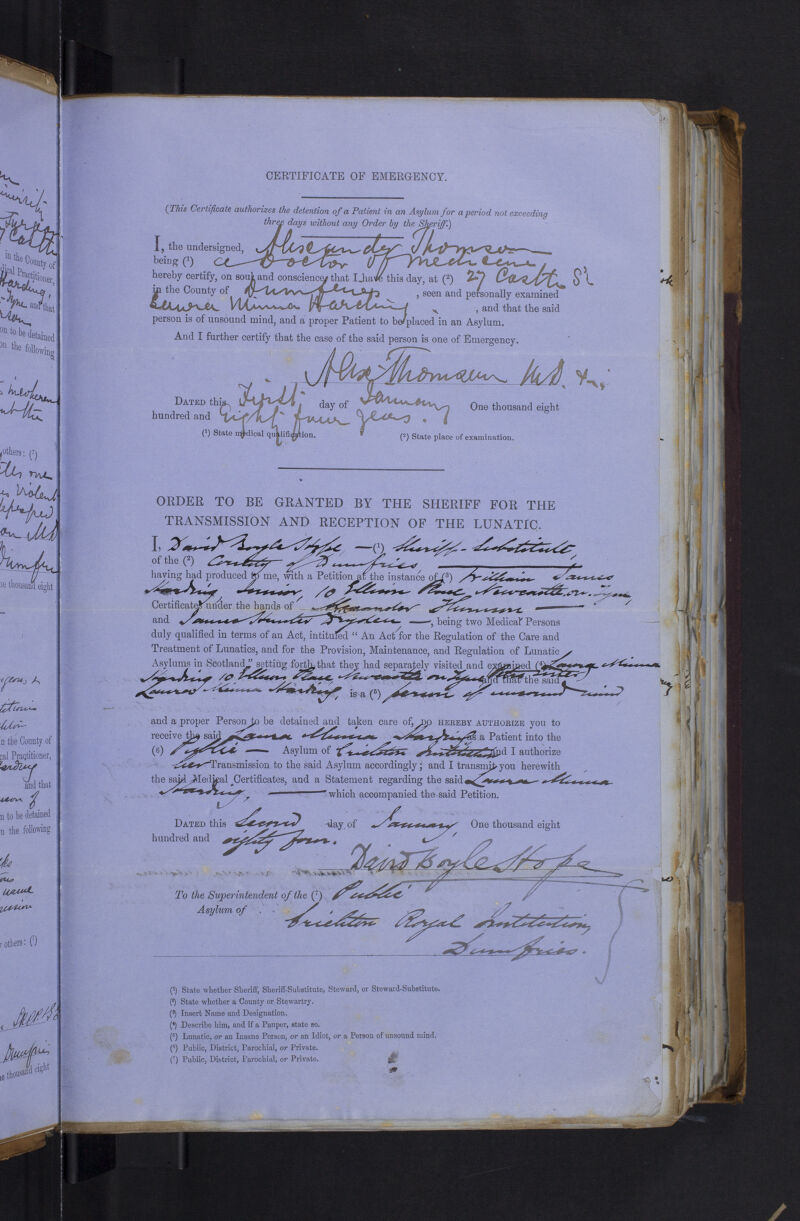 CERTIFICATE OF EMERGENCY.
(This Certificate authorizes the detention of a Patient in an Asylum for a period not exceeding
three days without any Order by the Sheriff.)
I, the undersigned, Alexander Thomson
being (¹) a Doctor of medicine
hereby certify, on soul and conscience, that I have this day, at (²) 27 Castle St
in the County of Dumfries, seen and personally examined
Laura Minna Harding, and that the said
person is of unsound mind, and a proper Patient to be placed in an Asylum.
And I further certify that the case of the said person is one of Emergency.
Alex Thomson M.D.
DATED this First day of January One thousand eight
hundred and eighty four years.
(¹) State medical qualification. (²) State place of examination.
ORDER TO BE GRANTED BY THE SHERIFF FOR THE
TRANSMISSION AND RECEPTION OF THE LUNATIC.
I, David Boyle Hope — (¹) Sheriff-Substitute,
of the (²) County of Dumfries,
having had produced to me, with a Petition at the instance of (³) William James
Harding, Junior, 10 Ellison Place, Newcastle on Tyne,
Certificates under the hands of Alexander Thomson —
and James Hunter Dryden —, being two Medical Persons
duly qualified in terms of an Act, intituled "An Act for the Regulation of the Care and
Treatment of Lunatics, and for the Provision, Maintenance, and Regulation of Lunatic
Asylums in Scotland," setting forth that they had separately visited and examined (⁴) Laura Minna
Harding 10 Ellison Place, Newcastle on Tyne (his sister) and that the said
Laura Minna Harding, is a (⁵) person of unsound mind,
and a proper Person to be detained and taken care of, DO HEREBY AUTHORIZE you to
receive the said Laura Minna Harding as a Patient into the
(⁶) Public — Asylum of Crichton Institution and I authorize
her Transmission to the said Asylum accordingly; and I transmit you herewith
the said Medical Certificates, and a Statement regarding the said Laura Minna
Harding, — which accompanied the said Petition.
DATED this Second day of January, One thousand eight
hundred and eighty four.
David Boyle Hope
To the Superintendent of the (⁷) Public
Asylum of Crichton Royal Institution,
Dumfries.
(¹) State whether Sheriff, Sheriff-Substitute, Steward, or Steward-Substitute.
(²) State whether a County or Stewartry.
(³) Insert Name and Designation.
(⁴) Describe him, and if a Pauper, state so.
(⁵) Lunatic, or an Insane Person, or an Idiot, or a Person of unsound mind.
(⁶) Public, District, Parochial, or Private.
(⁷) Public, District, Parochial, or Private.